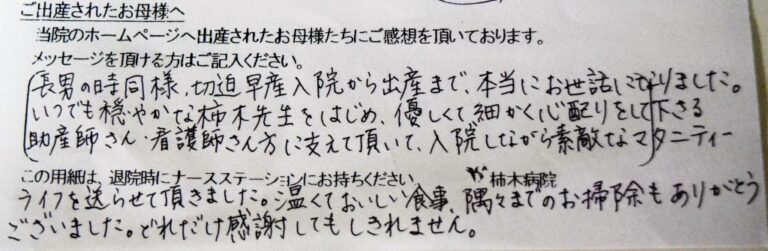 ご出産されたお母様へ
当院のホームページへ出産されたお母様たちにご感想を頂いております。
メッセージを頂ける方はご記入ください。
長男の時同様、切迫早産入院から出産まで、本当にお世話になりました。
いつでも穏やかな柿木先生をはじめ、優しくて細かく心配りをして下さる
助産師さん・看護師さん方に支えて頂いて、入院しながら素敵なマタニティー
この用紙は、退院時にナースステーションにお持ちください 柿木病院
ライフを送らせて頂きました。温くておいしい食事、隅々までのお掃除もありがとう
ございました。どれだけ感謝してもしきれません。